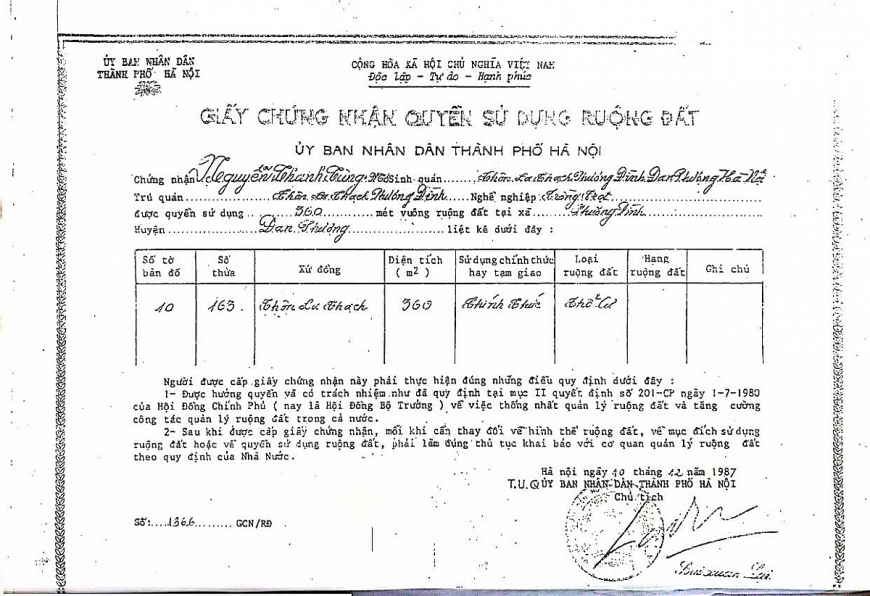 ỦY BAN NHÂN DÂN
THÀNH PHỐ HÀ NỘI
CỘNG HÒA XÃ HỘI CHỦ NGHĨA VIỆT NAM
Độc lập - Tự do - Hạnh phúc
GIẤY CHỨNG NHẬN QUYỀN SỬ DỤNG RUỘNG ĐẤT
ỦY BAN NHÂN DÂN THÀNH PHỐ HÀ NỘI
Chứng nhận Nguyễn Thanh Tùng Sinh quán Thôn La Thạch Phương Đình Đan Phượng Hà Nội
Trú quán Thôn La Thạch Phương Đình Nghề nghiệp Trồng Trọt
được quyền sử dụng 360 mét vuông ruộng đất tại xã Phương Đình
Huyện Đan Phượng liệt kê dưới đây :
Số tờ bản đồ
Số thửa
Xứ đồng
Diện tích ( m2 )
Sử dụng chính thức hay tạm giao
Loại ruộng đất
Hạng ruộng đất
Ghi chú
10 163 Thôn La Thạch 360 Chính Thức Thổ Cư
Người được cấp giấy chứng nhận này phải thực hiện đúng những điều quy định dưới đây :
1- Được hưởng quyền và có trách nhiệm như đã quy định tại mục II quyết định số 201-CP ngày 1-7-1980
của Hội Đồng Chính Phủ ( nay là Hội Đồng Bộ Trưởng ) về việc thống nhất quản lý ruộng đất và tăng cường
công tác quản lý ruộng đất trong cả nước.
2- Sau khi được cấp giấy chứng nhận, mỗi khi cần thay đổi về hình thể ruộng đất, về mục đích sử dụng
ruộng đất hoặc về quyền sử dụng ruộng đất, phải làm đúng thủ tục khai báo với cơ quan quản lý ruộng đất
theo quy định của Nhà Nước.
Hà nội ngày 10 tháng 12 năm 1987
T.U.Q ỦY BAN NHÂN DÂN THÀNH PHỐ HÀ NỘI
Chủ tịch
Số: 1366 GCN/RĐ